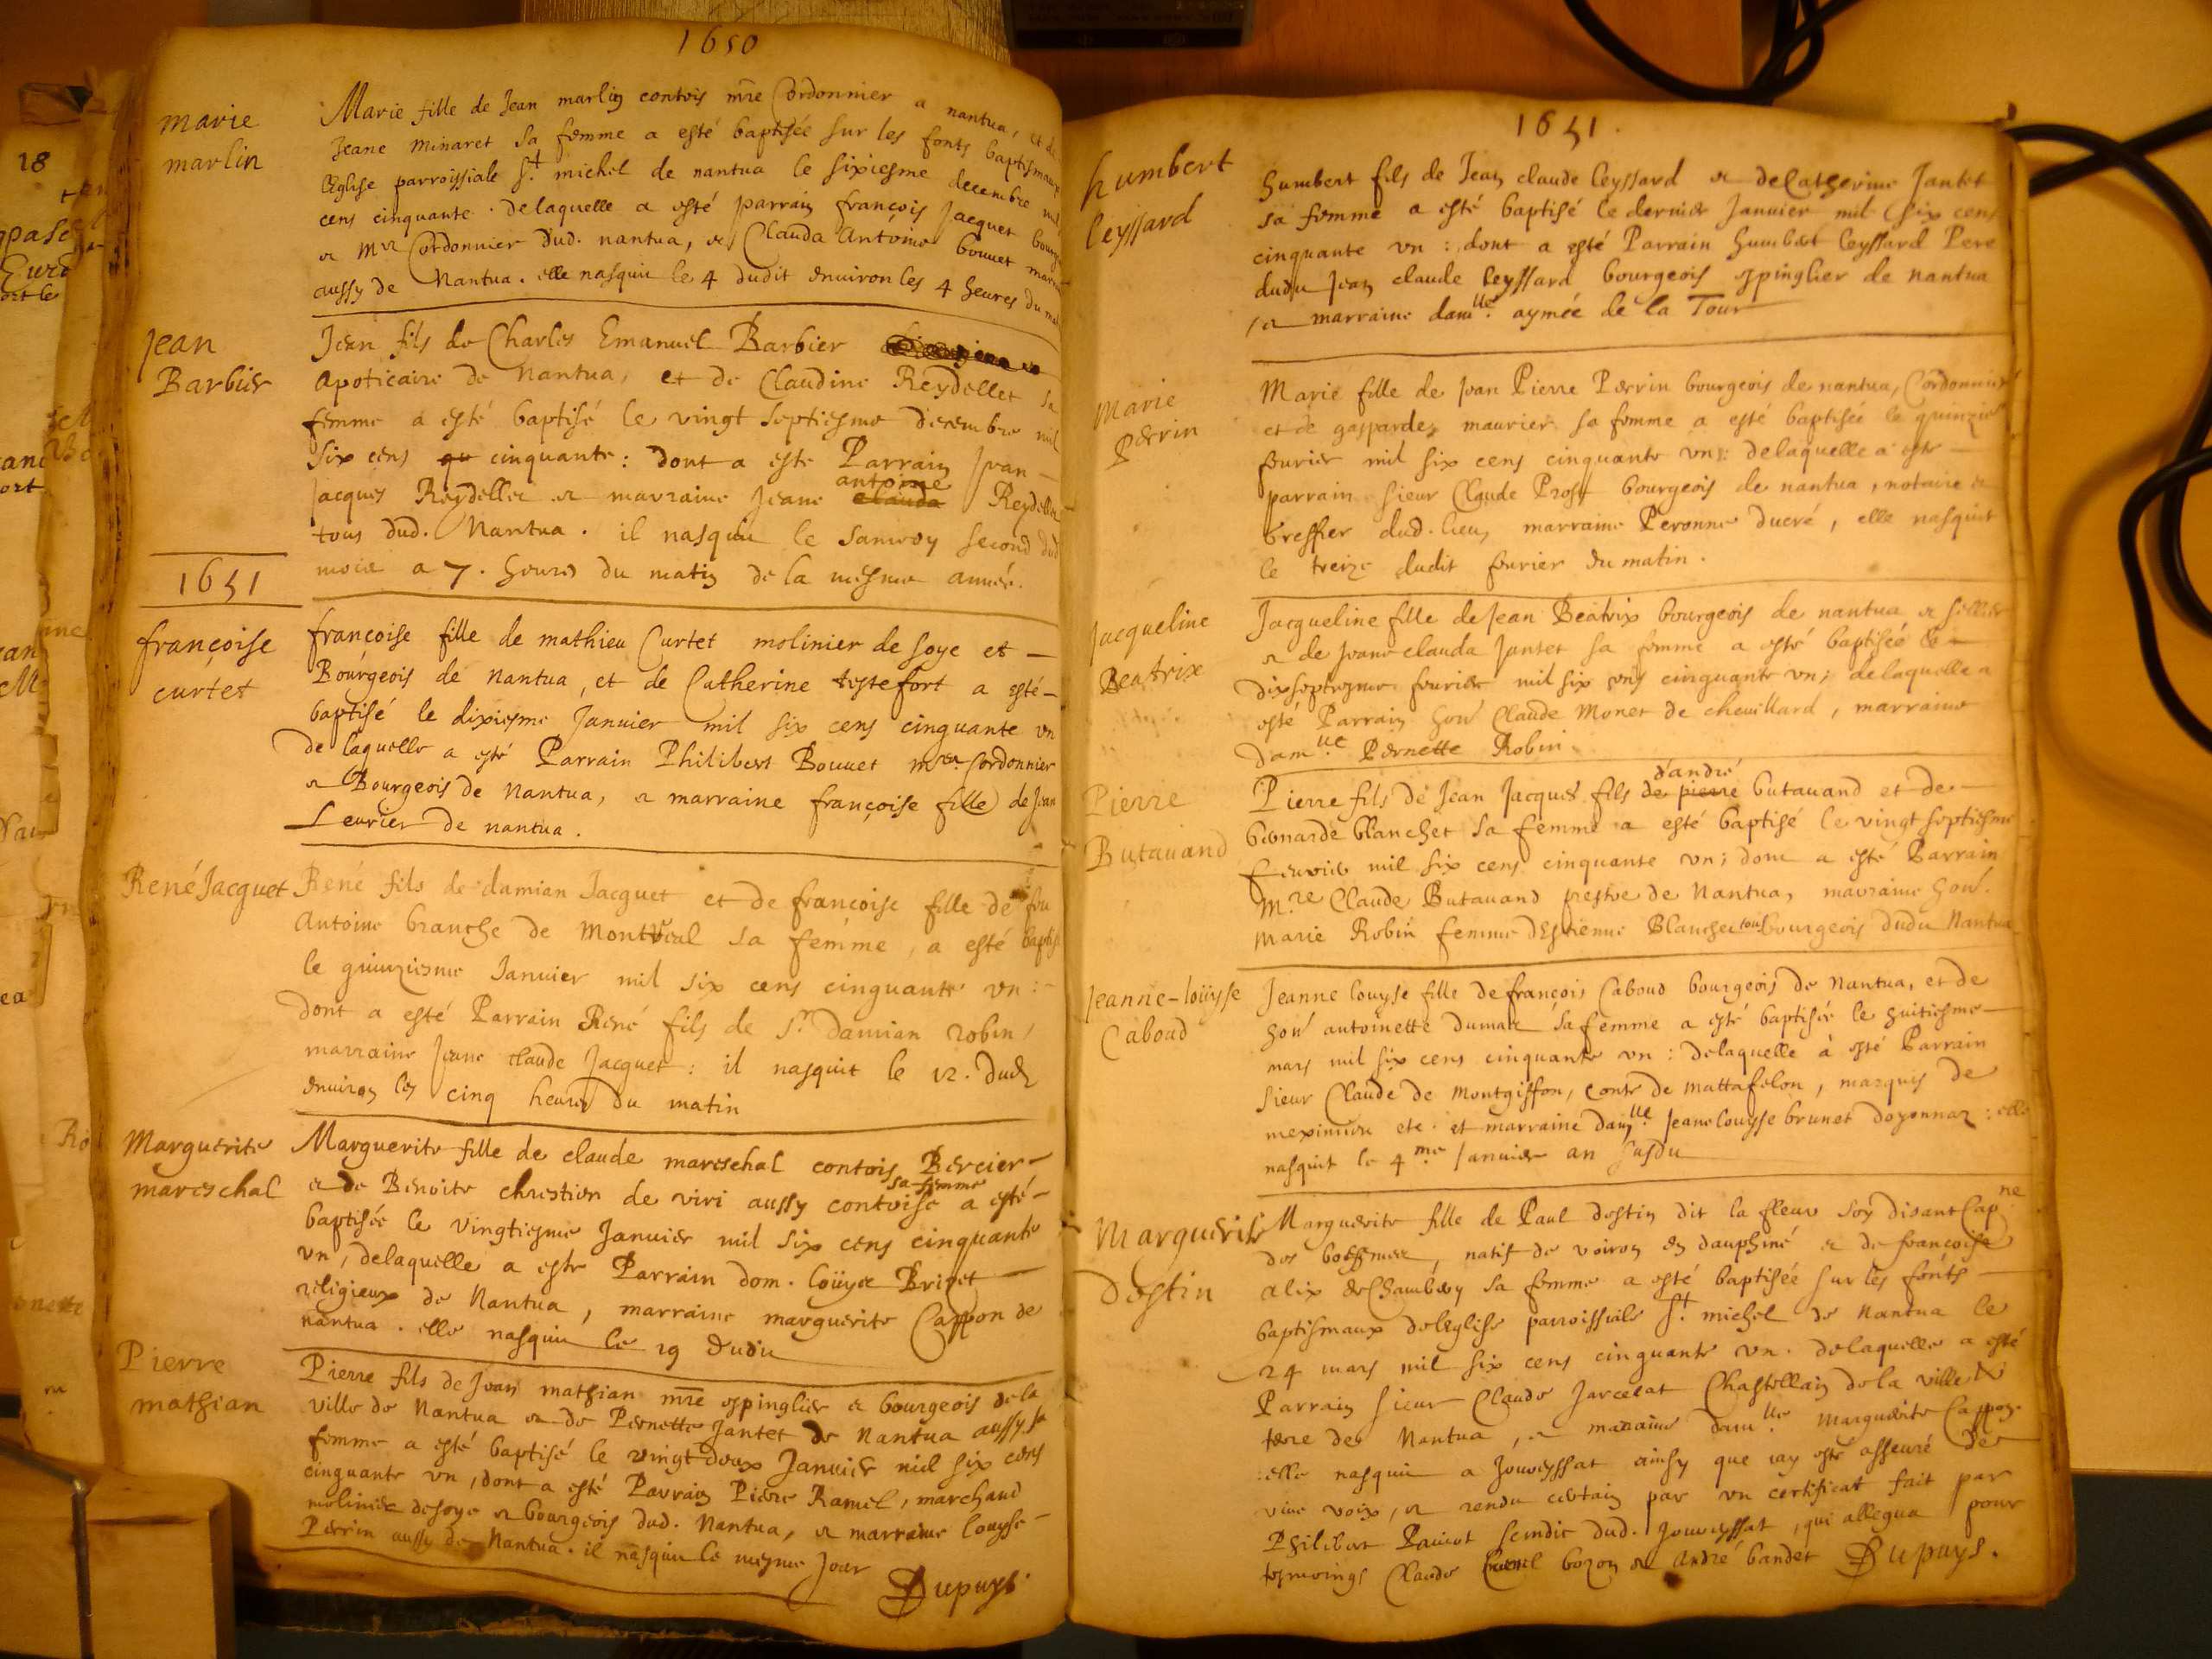 1650
marie
marlin
Marie fille de Jean marlin contois mre Cordonnier a nantua, et de
Jeane minaret sa femme a esté baptisée sur les fonts baptismaux
lEglise parroissiale St. michel de nantua le sixiesme decembre mil
cens cinquante. delaquelle a esté parrain françois Jacquet bourg
et mer Cordonnier dud. nantua, et Clauda Antoine bouuet marr
aussy de Nantua. elle nasquit le 4 dudit environ les 4 heures du mat
Jean
Barbier
Jean fils de Charles Emanuel Barbier
Apoticaire de Nantua, et de Claudine Reydellet sa
femme a esté baptisé le vingt septiesme decembre mil
six cens qu cinquante: dont a este Parrain Jean
Jacques Reydellet et marraine Jeane clauda antoine Reydellet
tous dud. Nantua. il nasquit le samedy second dud
mois a 7. heures du matin de la mesme année.
1651
françoise
curtet
françoise fille de mathieu Curtet molinier de soye et
Bourgeois de Nantua, et de Catherine testefort a esté
baptisé le dixiesme Janvier mil six cens cinquante vn
de laquelle a esté Parrain Philibert Bouuet mer Cordonnier
et Bourgeois de Nantua, et marraine françoise fille de Jean
Leurier de nantua.
René Jacquet
René fils de damian Jacquet et de françoise fille de feu
Antoine branche de Montreal sa femme, a esté baptisé
le quinziesme Janvier mil six cens cinquante vn:
dont a esté Parrain René fils de Sr damian robin,
marraine Jeane claude Jacquet: il nasquit le 12. dud
environ les cinq heures du matin
Marguerite
mareschal
Marguerite fille de claude mareschal contois Bercier
et de Benoite chrestien de viri aussy contoise sa femme a esté
baptisée le vingtiesme Janvier mil six cens cinquante
vn, delaquelle a este Parrain dom. Loüys Brinet
religieux de Nantua, marraine marguerite Cappon de
nantua. elle nasquit le 19 dudit
Pierre
mathian
Pierre fils de Jean mathian mre espinglier et bourgeois dela
ville de Nantua et de Pernette Jantet de Nantua aussy sa
femme a esté baptisé le vingt deux Janvier mil six cens
cinquante vn, dont a esté Parrain Pierre Ramel, marchand
molinier desoye et bourgeois dud. Nantua, et marraine Louyse
Perrin aussy de Nantua. il nasquit le mesme Jour
Dupuys.
1651.
humbert
leyssard
humbert fils de Jean claude leyssard et de Catherine Jantet
sa femme a esté baptisé le dernier Janvier mil six cens
cinquante vn: dont a esté Parrain humbert leyssard Pere
dudit Jean claude leyssard bourgeois espinglier de nantua
et marraine damlle. aymée de la Tour
Marie
Perrin
Marie fille de Jean Pierre Perrin bourgeois de nantua, Cordonnier
et de gasparde maurier sa femme a esté baptisée le quinzie
feurier mil six cens cinquante vn: delaquelle a este
parrain sieur Claude Prost bourgeois de nantua, notaire et
Greffier dud. lieu, marraine Peronne ducré, elle nasquit
le treize dudit feurier du matin.
Jacqueline
Beatrix
Jacqueline fille de Jean Beatrix bourgeois de nantua et sellier
et de Jeane clauda Jantet sa femme a esté baptisée le
dixseptiesme feurier mil six cens cinquante vn; delaquelle a
esté Parrain hon Claude Monet de cheuillard, marraine
damlle Pernette Robin
Pierre
Butauand
Pierre fils de Jean Jacques fils de pierre d'andré butauand et de
bernarde blanchet sa femme a esté baptisé le vingt septiesme
feuvrier mil six cens cinquante vn; dont a esté Parrain
m.re Claude Butauand prestre de Nantua, marraine hon.
Marie Robin femme dEstienne Blanchet tous bourgeois dudit Nantua
Jeanne-loüysse
Caboud
Jeanne louyse fille de françois Caboud bourgeois de Nantua, et de
hon antoinette dumar sa femme a esté baptisée le huitiesme
mars mil six cens cinquante vn: delaquelle à esté Parrain
sieur Claude de Montgiffon, conte de mattafelon, marquis de
meximieu etc. et marraine damlle Jeane louysse brunet doyonnaz: elle
nasquit le 4me Janvier an susdit
Marguerite
Destin
Marguerite fille de Paul destin dit la fleur soy disant Capne
des bohesmes, natif de voiron en dauphiné et de françoise
alix de Chambery sa femme a esté baptisée sur les fonts
baptismaux delEglise parroissiale St. michel de Nantua le
24 mars mil six cens cinquante vn. delaquelle a esté
Parrain sieur Claude Jarcelat Chastellain dela ville et
terre de Nantua, et maraine damlle. Marguerite Cappon.
elle nasquit a Jouveyssat ainsy que iay esté asseuré de
viue voix, et rendu certain par vn certificat fait par
Philibert Pauiot scindic dud. Jouveyssat, qui allegua pour
tesmoings Claude bozon et André bandet Dupuys.